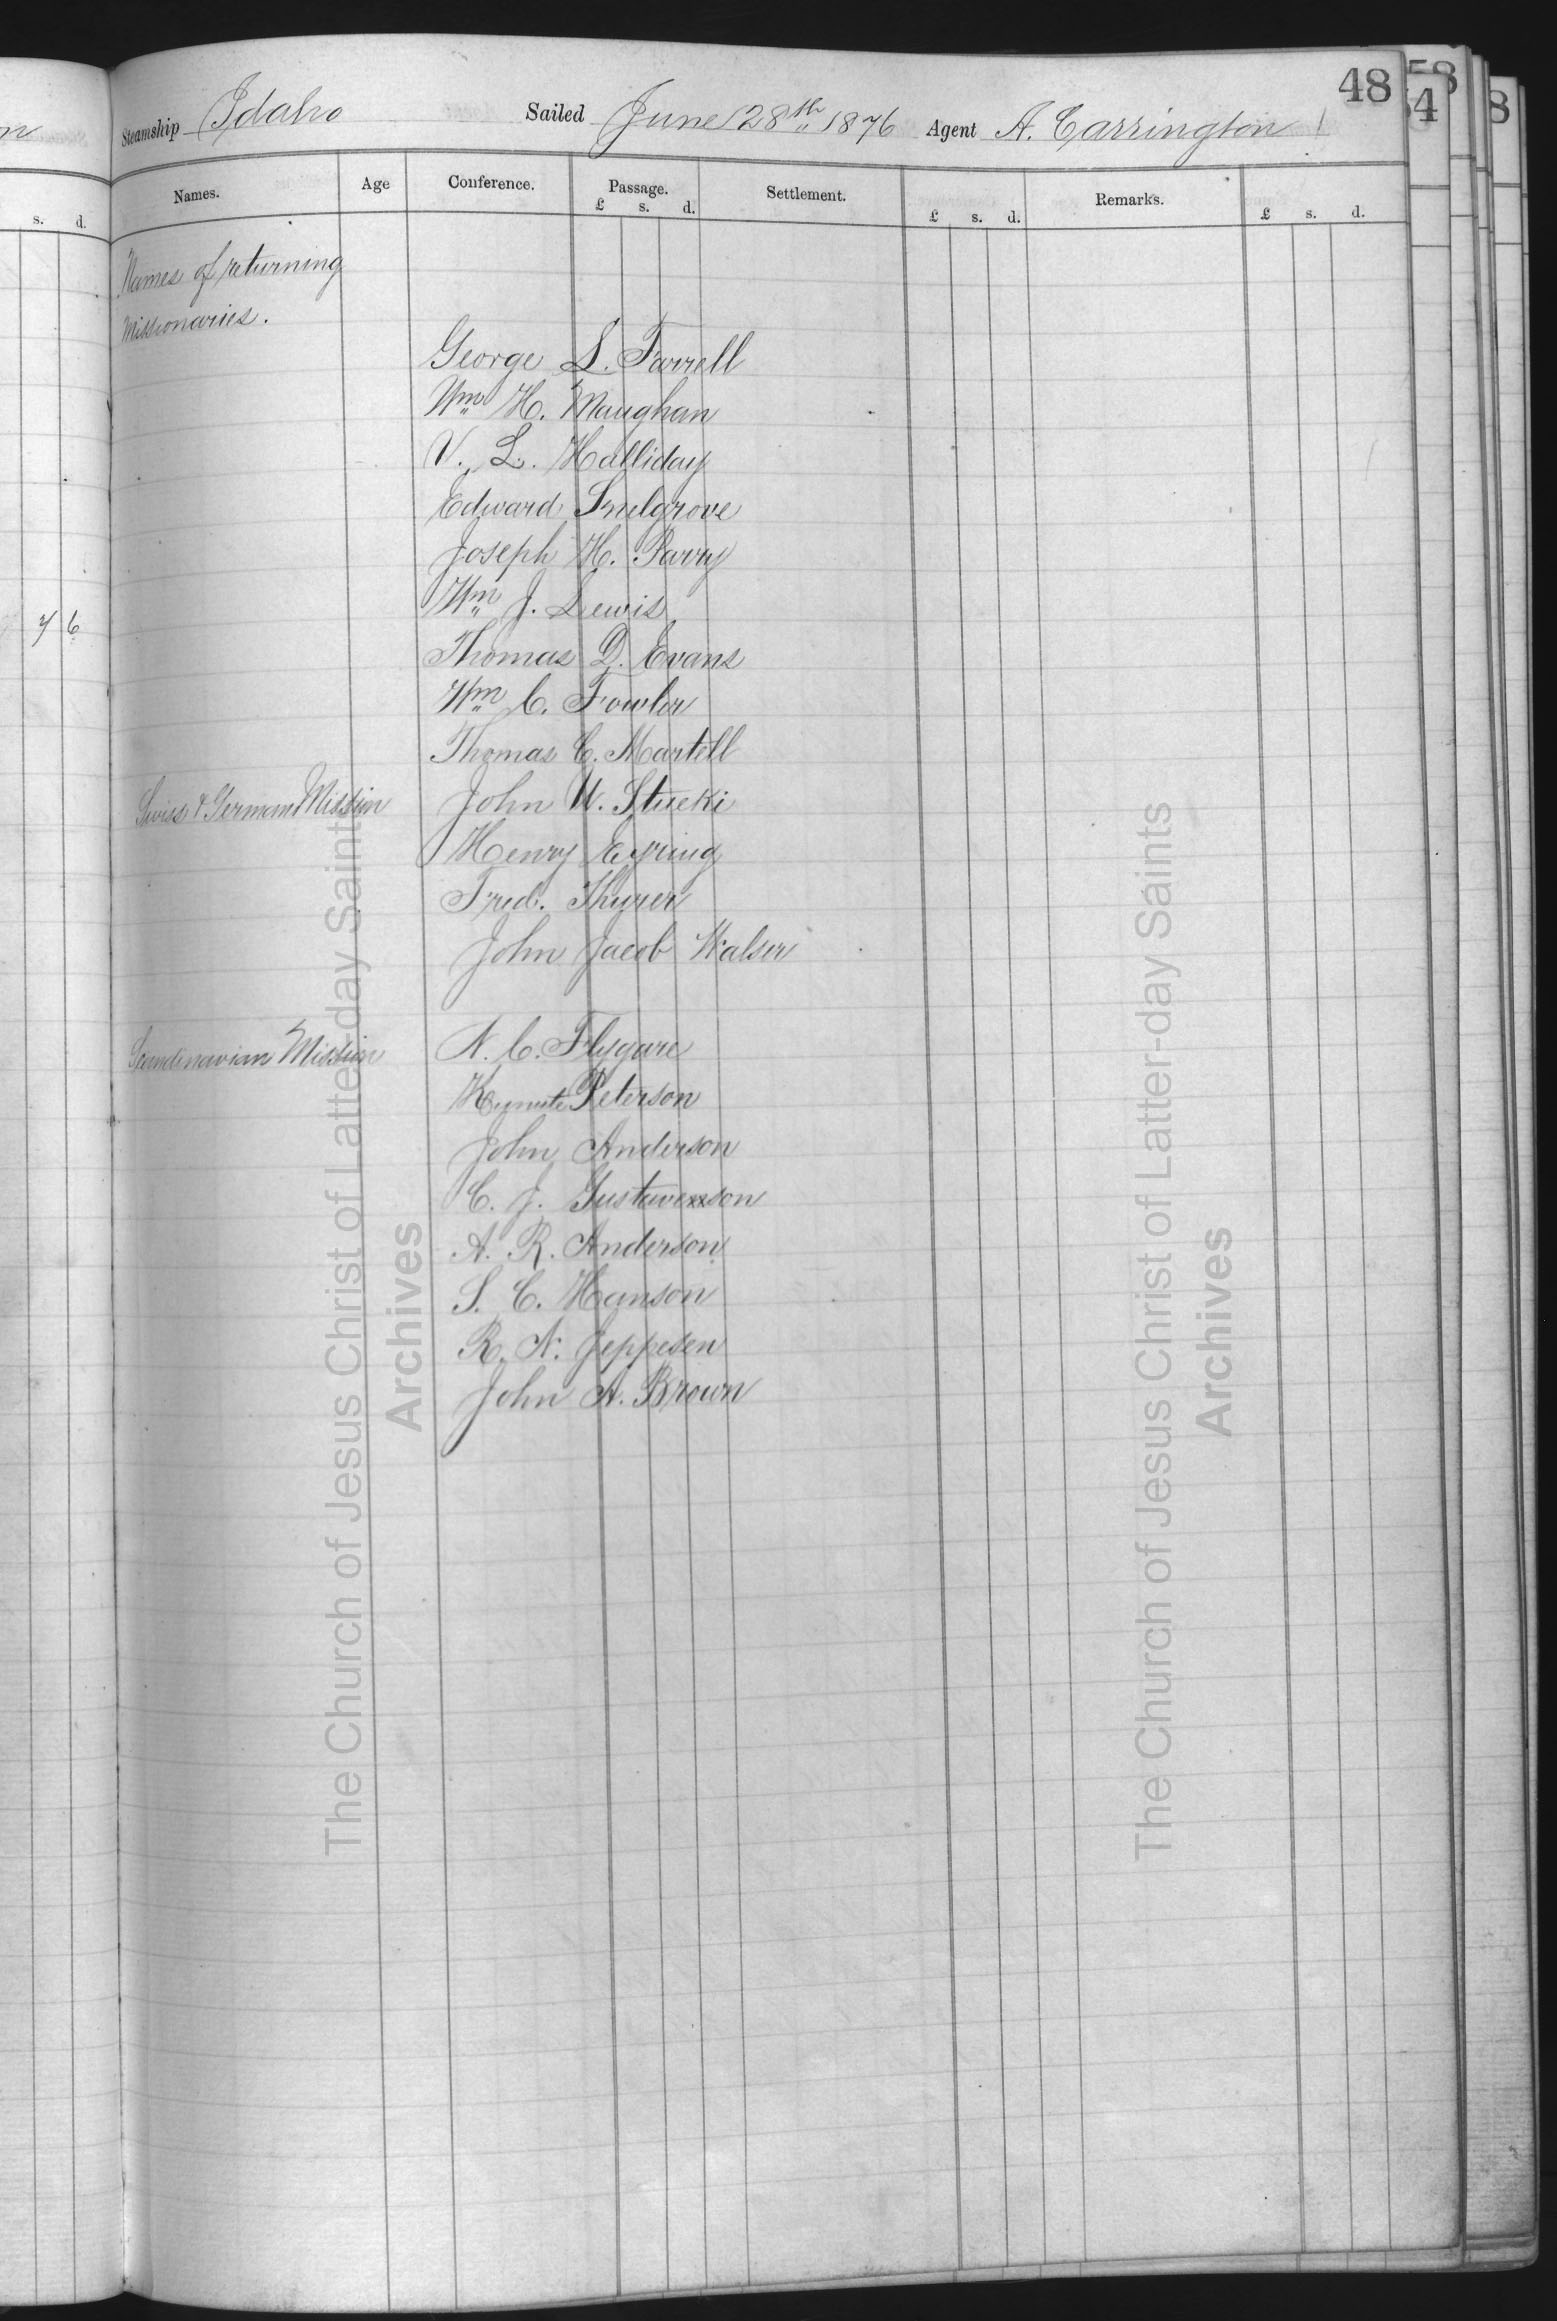 48
58
54
8
Steamship Idaho Sailed June 28th 1876 Agent A. Carrington
Names. Age Conference. Passage. Settlement. Remarks.
£ s. d. £ s. d. £ s. d.
s. d.
Names of returning
Missionaries.
George L. Farrell
Wm H. Maughan
V. L. Halliday
Edward Snelgrove
Joseph H. Parry
Wm J. Lewis
7 6
Thomas D. Evans
Wm C. Fowler
Thomas C. Martell
Swiss & German Mission John U. Stucki
Henry Eyring
Fred. Thurer
John Jacob Walser
Scandinavian Mission N. C. Flygare
Peterson
John Anderson
C. J. Gustavexson
A. R. Anderson
S. C. Hanson
R. N. Jeppesen
John A. Brown
The Church of Jesus Christ of Latter-day Saints
Archives
The Church of Jesus Christ of Latter-day Saints
Archives